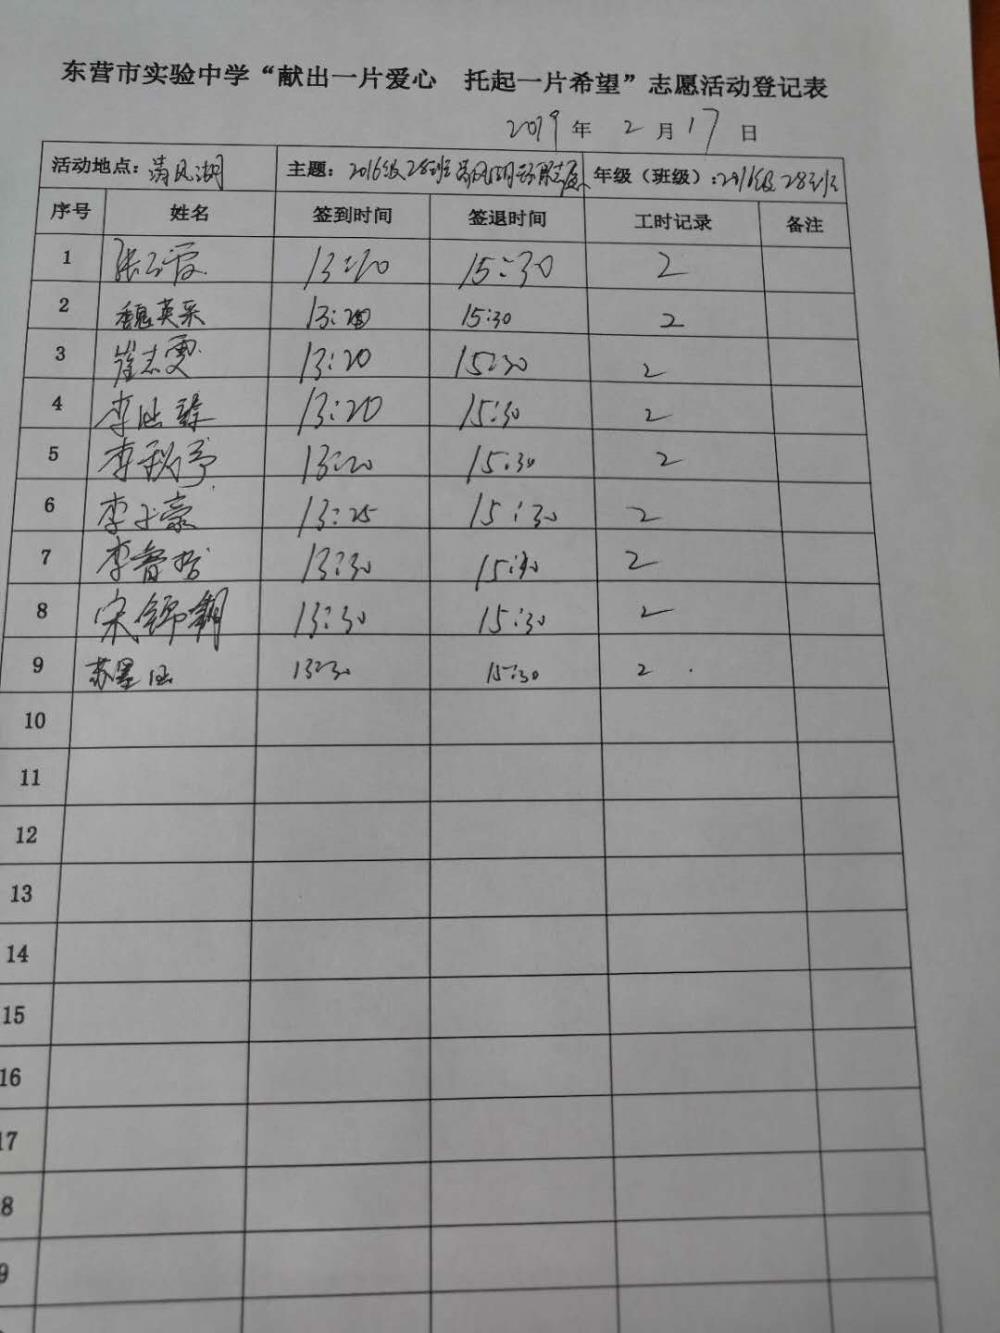 东营市实验中学“献出一片爱心 托起一片希望”志愿活动登记表
2019年 2月17日
活动地点：清风湖 主题：2016级28班清风湖 年级（班级）：2016级28班
序号 姓名 签到时间 签退时间 工时记录 备注
1 张 13:20 15:30 2
2 魏英采 13:20 15:30 2
3 崔志雯 13:20 15:30 2
4 李 13:20 15:30 2
5 李秋 13:20 15:30 2
6 李子豪 13:25 15:30 2
7 李睿哲 13:30 15:30 2
8 宋锦朝 13:30 15:30 2
9 苏墨涵 13:30 15:30 2
10
11
12
13
14
15
16
17
8
9